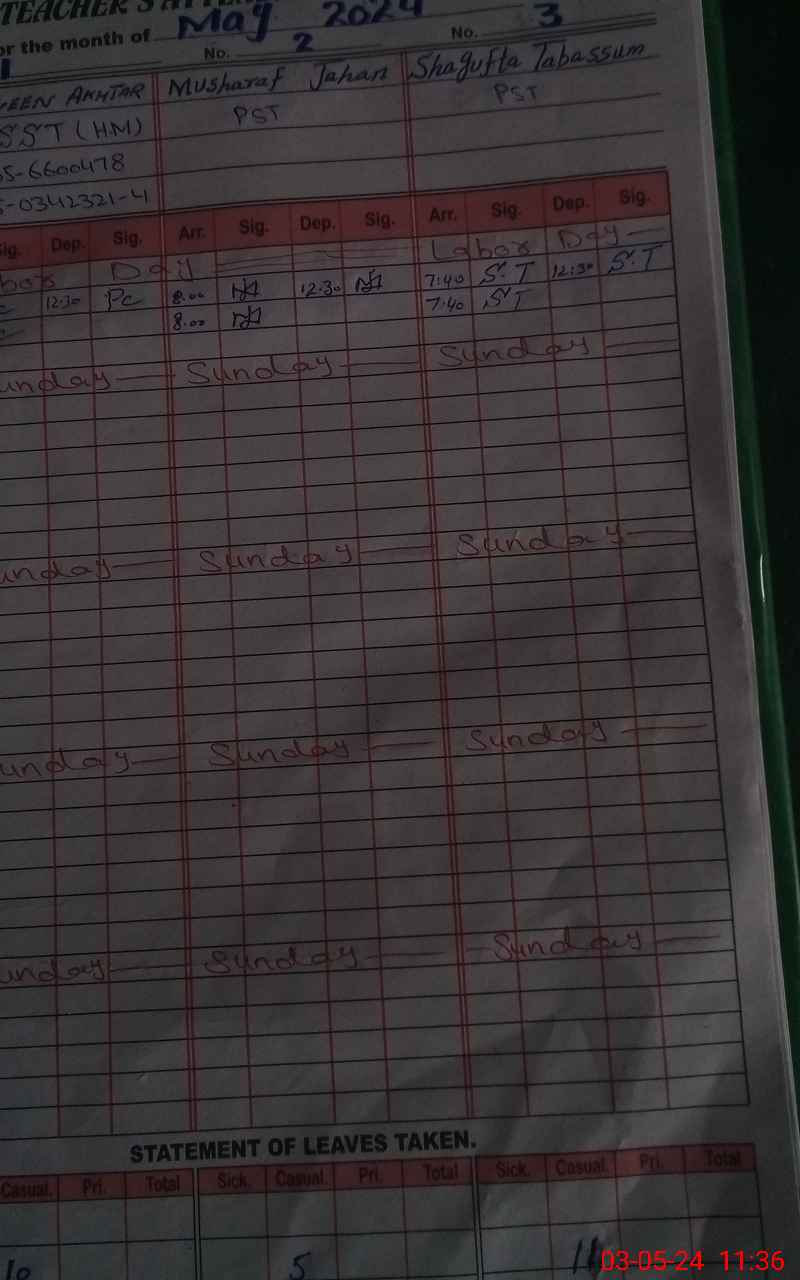 TEACHER'S
or the month of May 2024
1 No. 2 No. 3
EEN AKHTAR Musharaf Jahan Shagufta Tabassum
SST (HM) PST PST
5-6600478
5-0342321-4
ig. Dep. Sig. Arr. Sig. Dep. Sig. Arr. Sig. Dep. Sig.
bor Day Labor Day
12.30 Pc 8.00 12.30 7:40 S.T 12:30 S.T
8.00 7:40 ST
unday Sunday Sunday
unday Sunday Sunday
unday Sunday Sunday
unday Sunday Sunday
STATEMENT OF LEAVES TAKEN.
Casual. Pri. Total Sick. Casual. Pri. Total Sick. Casual. Pri. Total
10 5 11
03-05-24 11:36